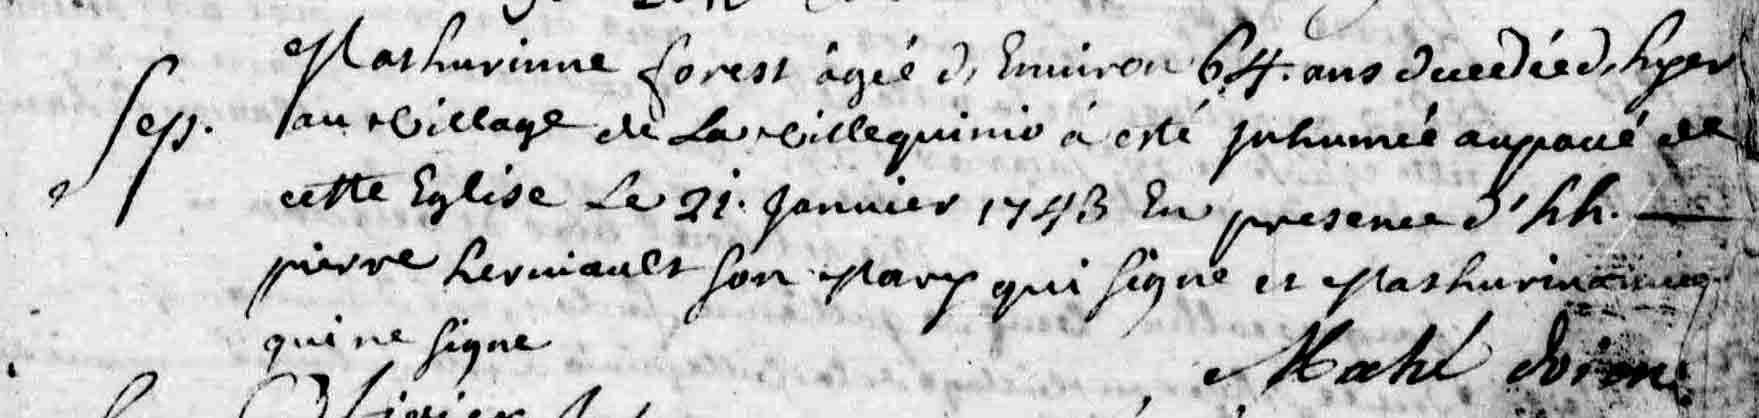 Mathurinne forest âgéé d'Environ 64. ans decedéé d'hyer
Sep. au village de La villequinio à esté Inhumée aupavé de
cette Eglise Le 21. Janvier 1743 En presence d'hh.
pierre herviault son Mary qui signe et Mathurin
qui ne signe
Mahé doien